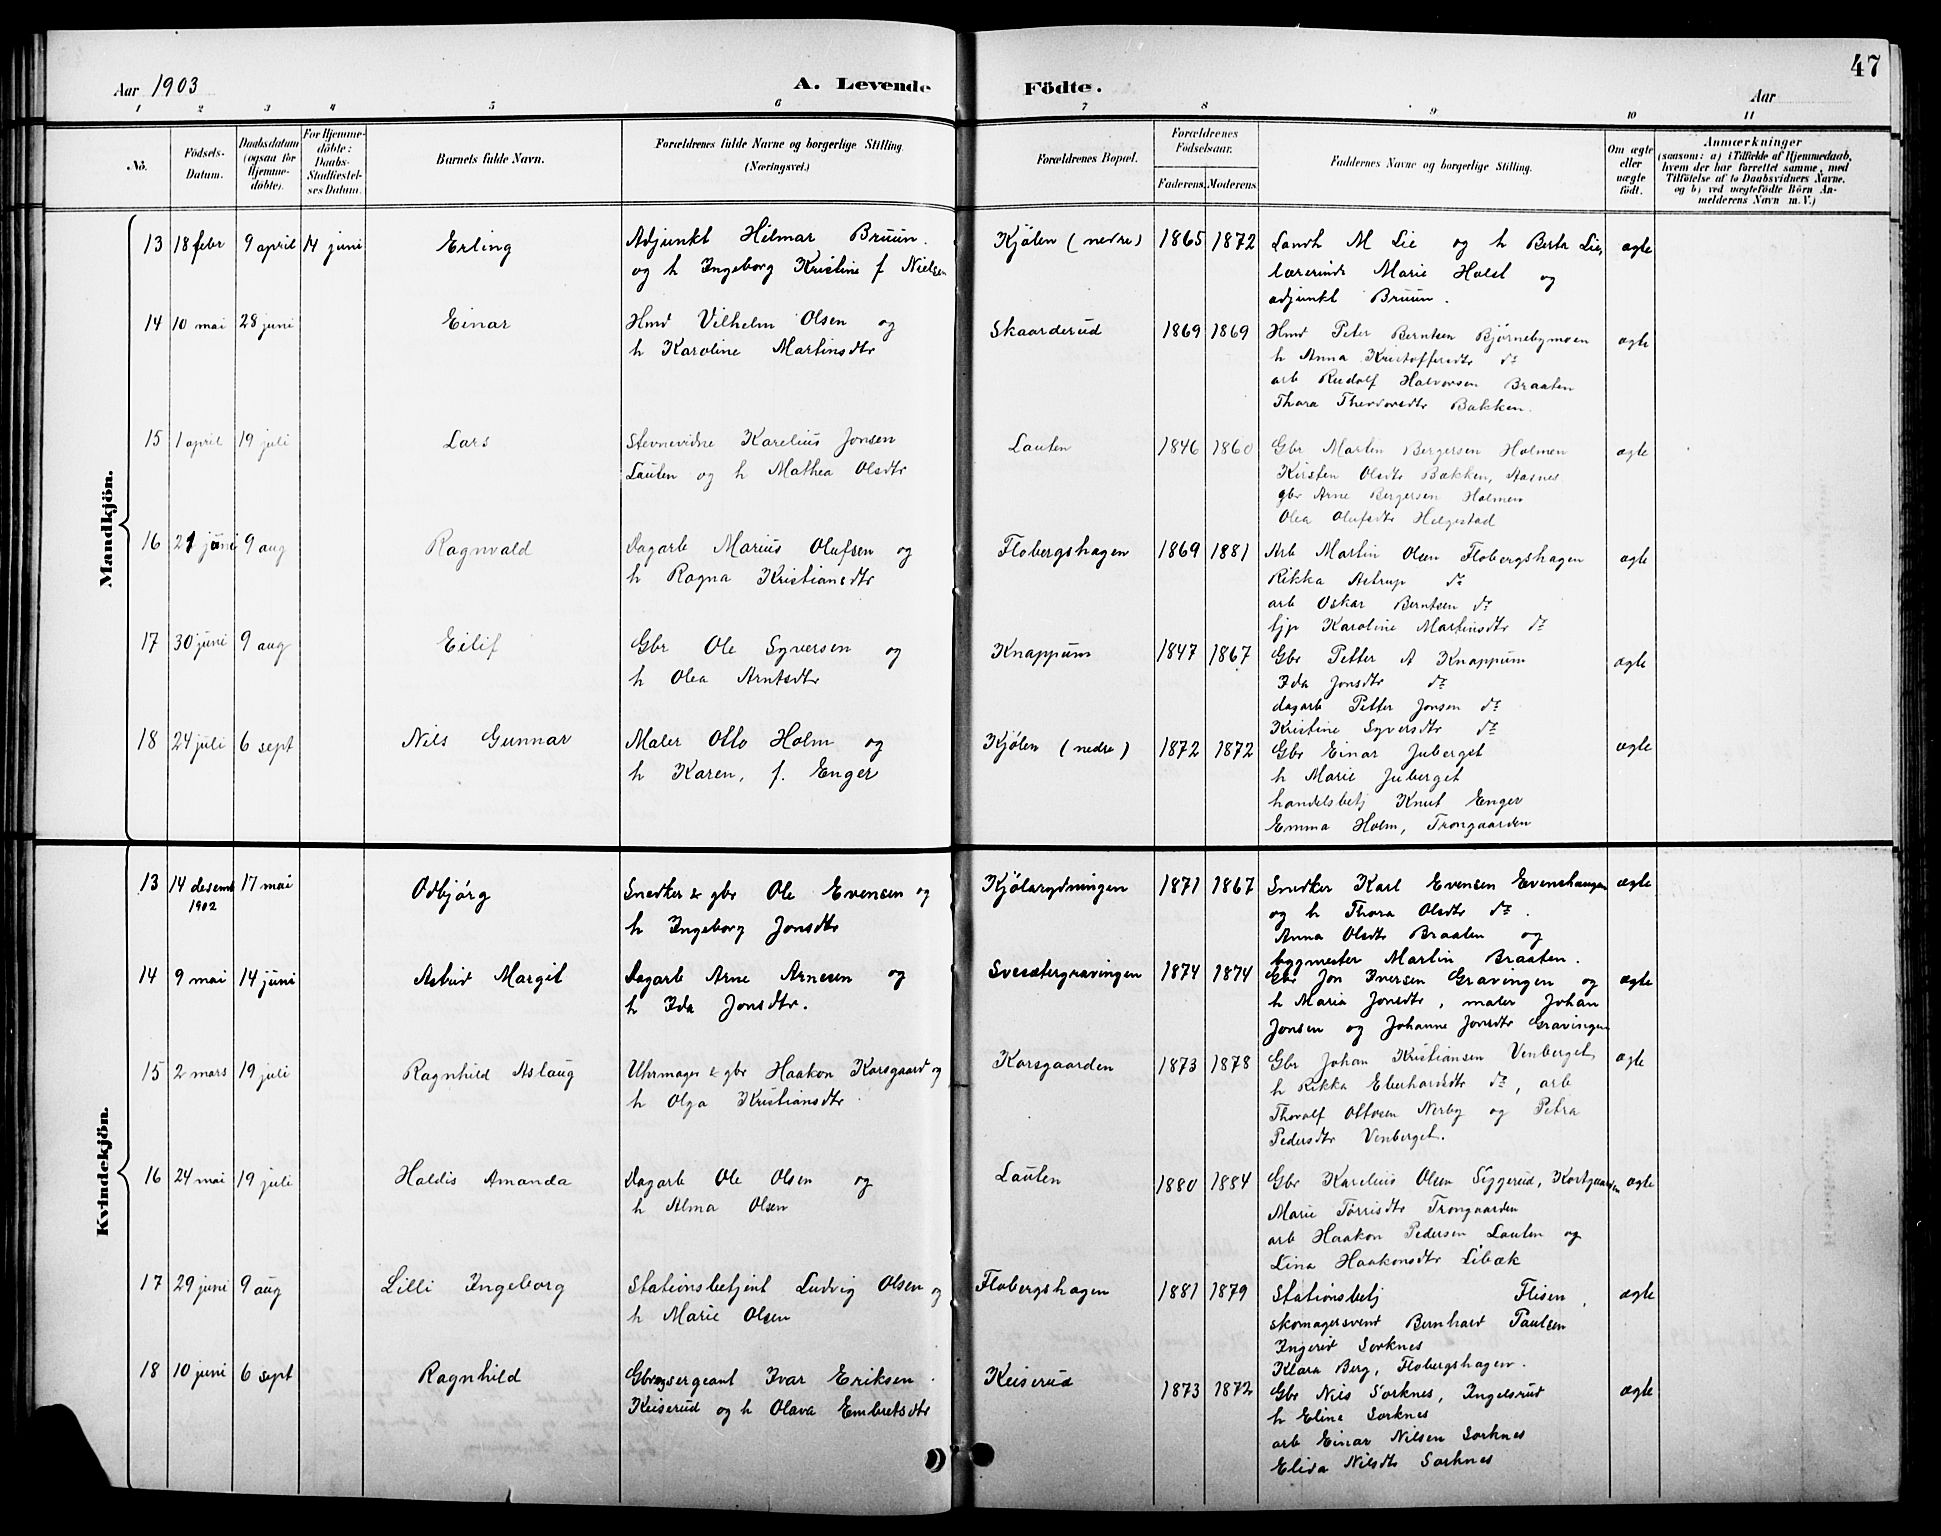 47
Aar 1903 A. Levende Födte. Aar
1 2 3 4 5 6 7 8 9 10 11
No. Födsels-Datum. Daabsdatum (ogsaa for Hjemme-döbte). For Hjemme-döbte: Daabs-Stadfæstel-ses Datum. Barnets fulde Navn. Forældrenes fulde Navne og borgerlige Stilling (Næringsvei.) Forældrenes Bopæl. Forældrenes Födselsaar. Faderens. Moderens. Faddernes Navne og borgerlige Stilling. Om ægte eller uægte födt. Anmærkninger (saasom: a) i Tilfælde af Hjemmedaab, hvem der har forrettet samme, med Tilföielse af to Daabsvidners Navne, og b) ved uægtefödte Börn An-melderens Navn m. V.)
Mandkjön.
13 18 febr 9 april 14 juni Erling Adjunkt Hilmar Bruun. Kjölen (nedre) 1865 1872 Landh M Lie og h Berta Lie, ægte
og h Ingeborg Kristine f Nielsen lærerinde Marie Holst og
adjunkt Bruun.
14 10 mai 28 juni Einar Hmd Vilhelm Olsen og Skaarderud 1869 1869 Hmd Peter Berntsen Bjørnebymoen ægte
h Karoline Martinsdtr h Anna Kristoffersdtr do
arb Rudolf Halvorsen Braaten
Thora Theodorsdtr Bakken.
15 1 april 19 juli Lars Stevnevidne Karelius Jonsen Lauten 1846 1860 Gbr Martin Bergersen Holmen ægte
Lauten og h Mathea Olsdtr Kirsten Olsdtr Bakken, Aasnes
gbr Arne Bergersen Holmen
Olea Olufsdtr Helgestad
16 21 juni 9 aug Ragnvald Dagarb Marius Olufsen og Flobergshagen 1869 1881 Arb Martin Olsen Flobergshagen ægte
h Ragna Kristiansdtr Rikka Astrup do
arb Oskar Berntsen do
tjp Karoline Martinsdtr do
17 30 juni 9 aug Eilif Gbr Ole Syversen og Knappum 1847 1867 Gbr Petter A Knappum ægte
h Olea Arntsdtr Ida Jonsdtr do
dagarb Petter Jonsen do
Kristine Syversdtr do
18 24 juli 6 sept Nils Gunnar Maler Otto Holm og Kjølen (nedre) 1872 1872 Gbr Einar Juberget ægte
h Karen, f. Enger h Marie Juberget
handelsbetj Knut Enger
Emma Holm, Trongaarden
Kvindekjön.
13 14 desemb 1902 17 mai Odbjörg Snedker & gbr Ole Evensen og Kjölarydningen 1871 1867 Snedker Karl Evensen Evenshaugen ægte
h Ingeborg Jonsdtr og h Thora Olsdtr do.
Anna Olsdtr Braaten og
bygmester Martin Braaten.
14 9 mai 14 juni Astrid Margit Dagarb Arne Arnesen og Svesætergravingen 1874 1874 Gbr Jon Iversen Gravingen og ægte
h Ida Jonsdtr. h Maria Jonsdtr, maler Johan
Jonsen og Johanne Jonsdtr Gravingen
15 2 mars 19 juli Ragnhild Aslaug Uhrmager & gbr Haakon Korsgaard og Korsgaarden 1873 1878 Gbr Johan Kristiansen Venberget ægte
h Olga Kristiansdtr. h Rikka Eberhardsdtr do, arb
Thoralf Ottosen Nerby og Petra
Pedersdtr Venberget.
16 24 mai 19 juli Haldis Amanda Dagarb Ole Olsen og Lauten 1880 1884 Gbr Karelius Olsen Siggerud, Kortgaarden ægte
h Alma Olsen Marie Tørrisdtr Trongaarden
arb Haakon Pedersen Lauten og
Lina Haakonsdtr Libæk
17 29 juni 9 aug Lilli Ingeborg Stationsbetjent Ludvig Olsen og Flobergshagen 1881 1879 Stationsbetj Flisen, ægte
h Marie Olsen skomagersvend Bernhard Paulsen
Ingerid Sorknes
Klara Berg, Flobergshagen.
18 10 juni 6 sept Ragnhild Gbr og sergeant Ivar Eriksen Keiserud 1873 1872 Gbr Nils Sorknes, Ingelsrud ægte
Keiserud og h Olava Embretsdtr h Eline Sorknes
arb Einar Nilsen Sorknes
Elida Nilsdtr Sorknes